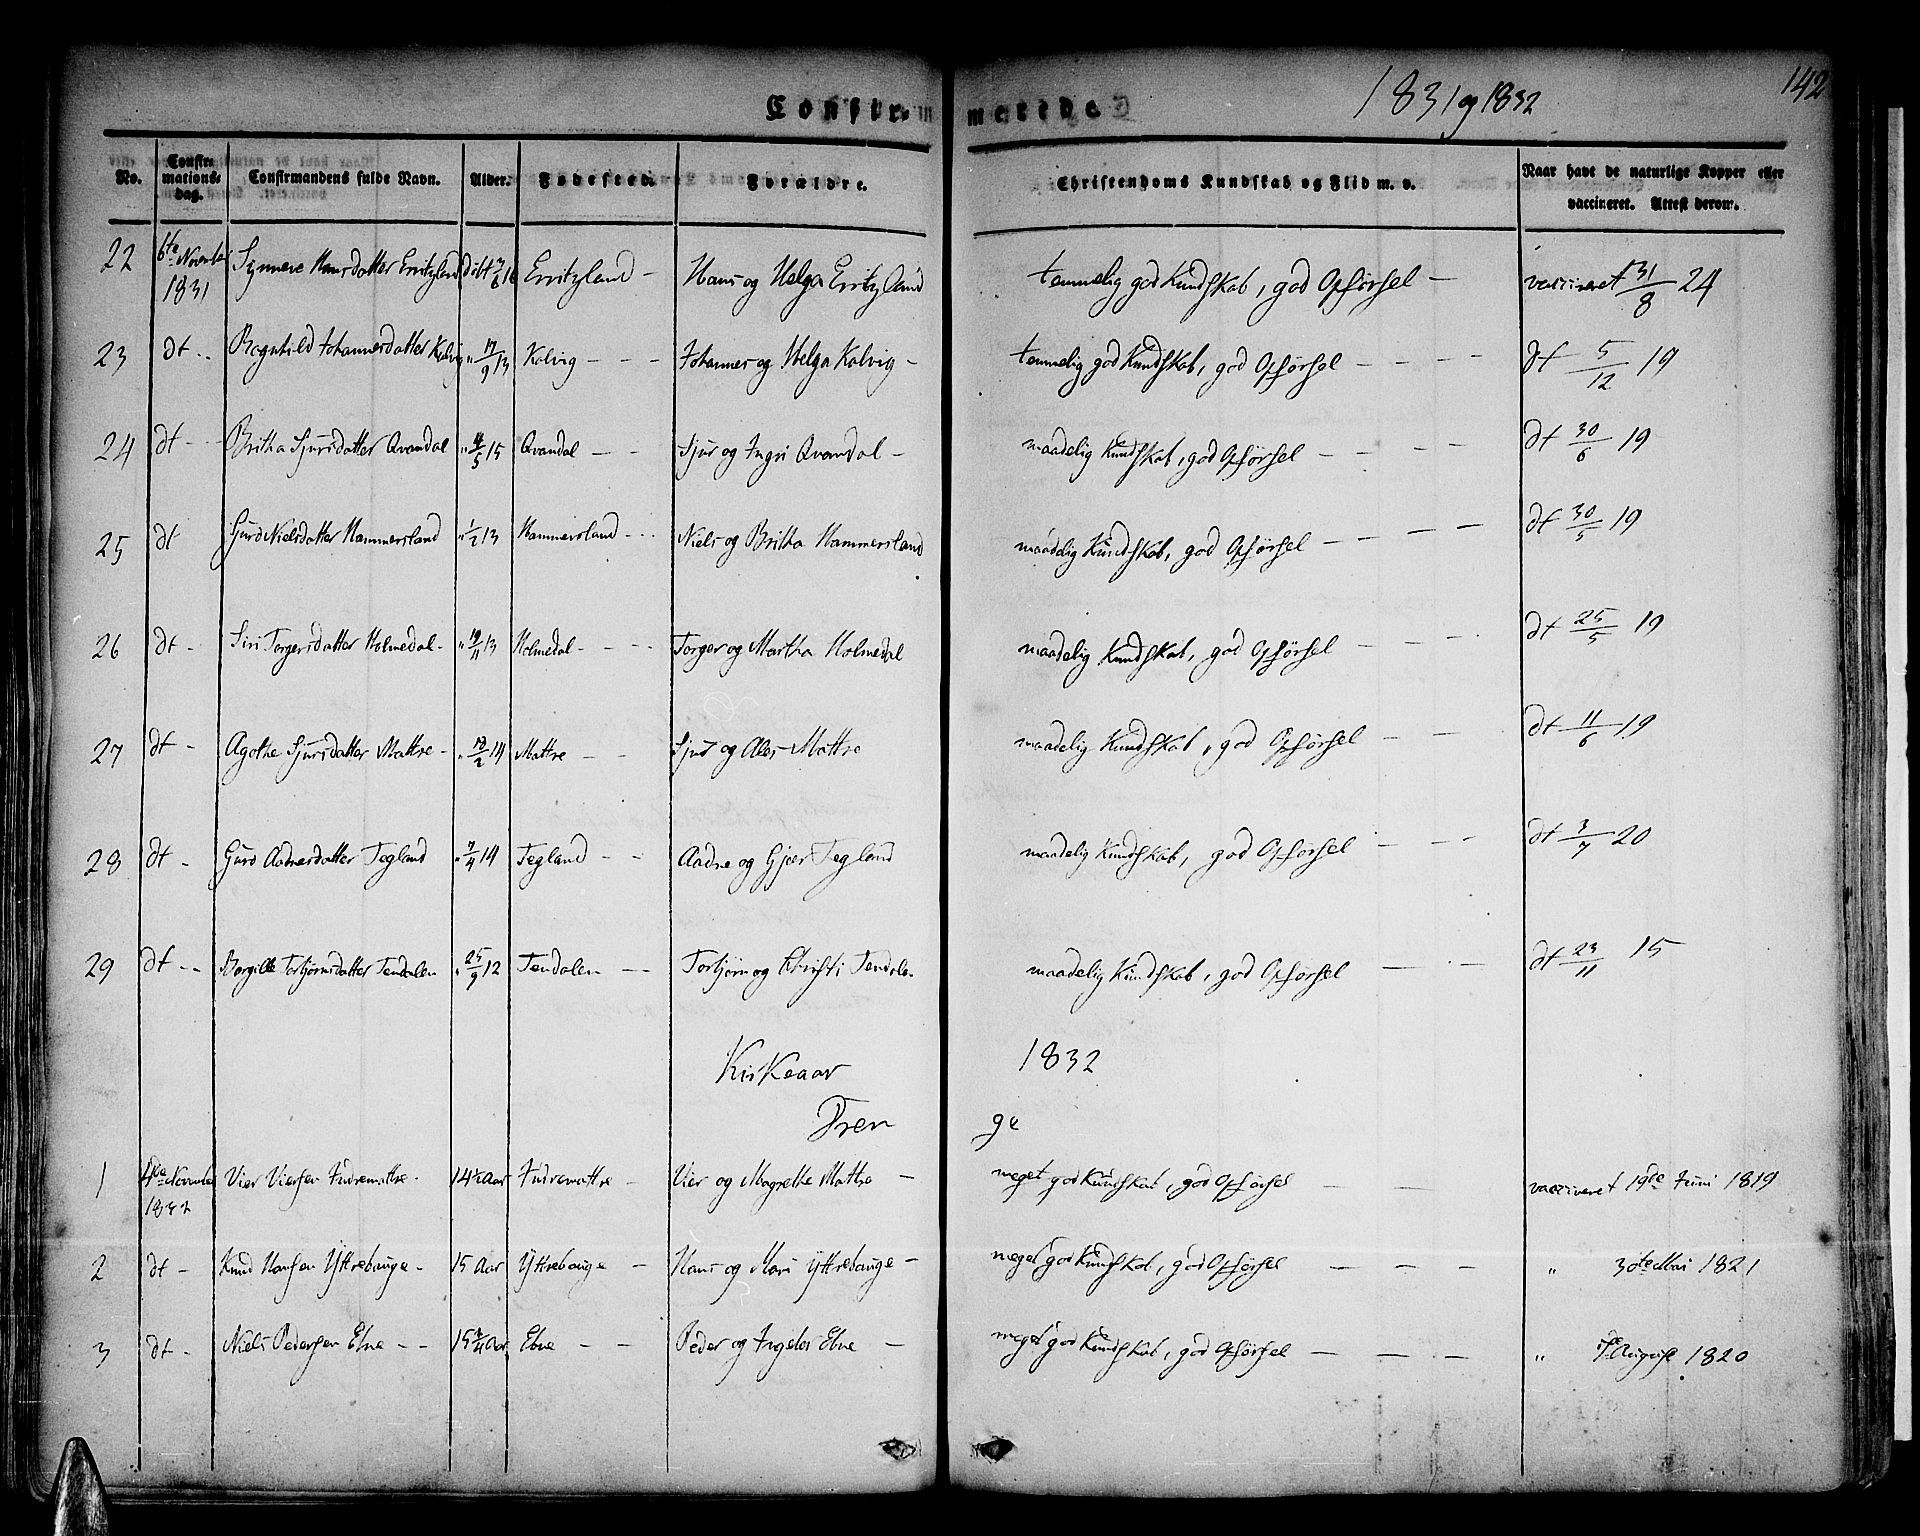 142
1831 og 1832
Confirmerede
No. Confirmations-dag. Confirmandens fulde Navn. Alder. Fødested. Forældre. Christendoms Kundskab og Flid m. v. Naar havt de naturlige Kopper eller vaccineret. Attest derom.
22 6te November 1831 Synneve Hansdatter Erritzland døbt 6 16 Erritzland - Hans og Helga Erritzland temmelig god Kundskab, god Opførsel - vaccineret 31/8 24
23 dt - - Ragnhild Johannesdatter Kalvig " 17/9 13 Kalvig - - - Johannes og Helga Kalvig - temmelig god Kundskab, god Opførsel - - - - dt 5/12 19
24 dt - - Britha Sjursdatter Qvandal " 4/5 15 Qvandal - - Sjur og Ingri Qvandal - maadelig Kundskab, god Opførsel - - - - dt 30/6 19
25 dt Gurd Nielsdatter Hammersland " 1/2 13 Hammersland - - - Niels og Britha Hammersland maadelig Kundskab, god Opførsel - - - - dt 30/5 19
26 dt - Siri Torgersdatter Holmedal - " 19/11 13 Holmedal - - - - Torger og Martha Holmedal maadelig Kundskab, god Opførsel - - - dt 25/5 19
27 dt - Agathe Sjursdatter Mattre - " 12/2 14 Mattre - - Sjur og Ales Mattre maadelig Kundskab, god Opførsel - - - dt 11/6 19
28 dt - Gurd Aadnesdatter Tegland " 7/4 14 Tegland - - Aadne og Gjær Tegland maadelig Kundskab, god Opførsel - - - dt 3/7 20
29 dt - - Borgille Torbjørnsdatter Tendalen " 25/9 12 Tendalen - - Torbjørn og Christi Tendalen maadelig Kundskab, god Opførsel - - - dt 23/11 15
Kirkeaar 1832
Dren ge
1 4de November 1832 Vier Viersen Indremattre - 14½ Aar Indremattre - Vier og Magrethe Mattre - meget god Kundskab, god Opførsel - - vaccineret 19de Juni 1819
2 dt - Knud Hansen Yttrebauge - 15 Aar Yttrebauge - Hans og Mari Yttrebauge - meget god Kundskab, god Opførsel - - - " 30te Mai 1821
3 dt - Niels Pedersen Ebne - - 15¾ Aar Ebne - - Peder og Ingebor Ebne - meget god Kundskab, god Opførsel - - - " August 1820